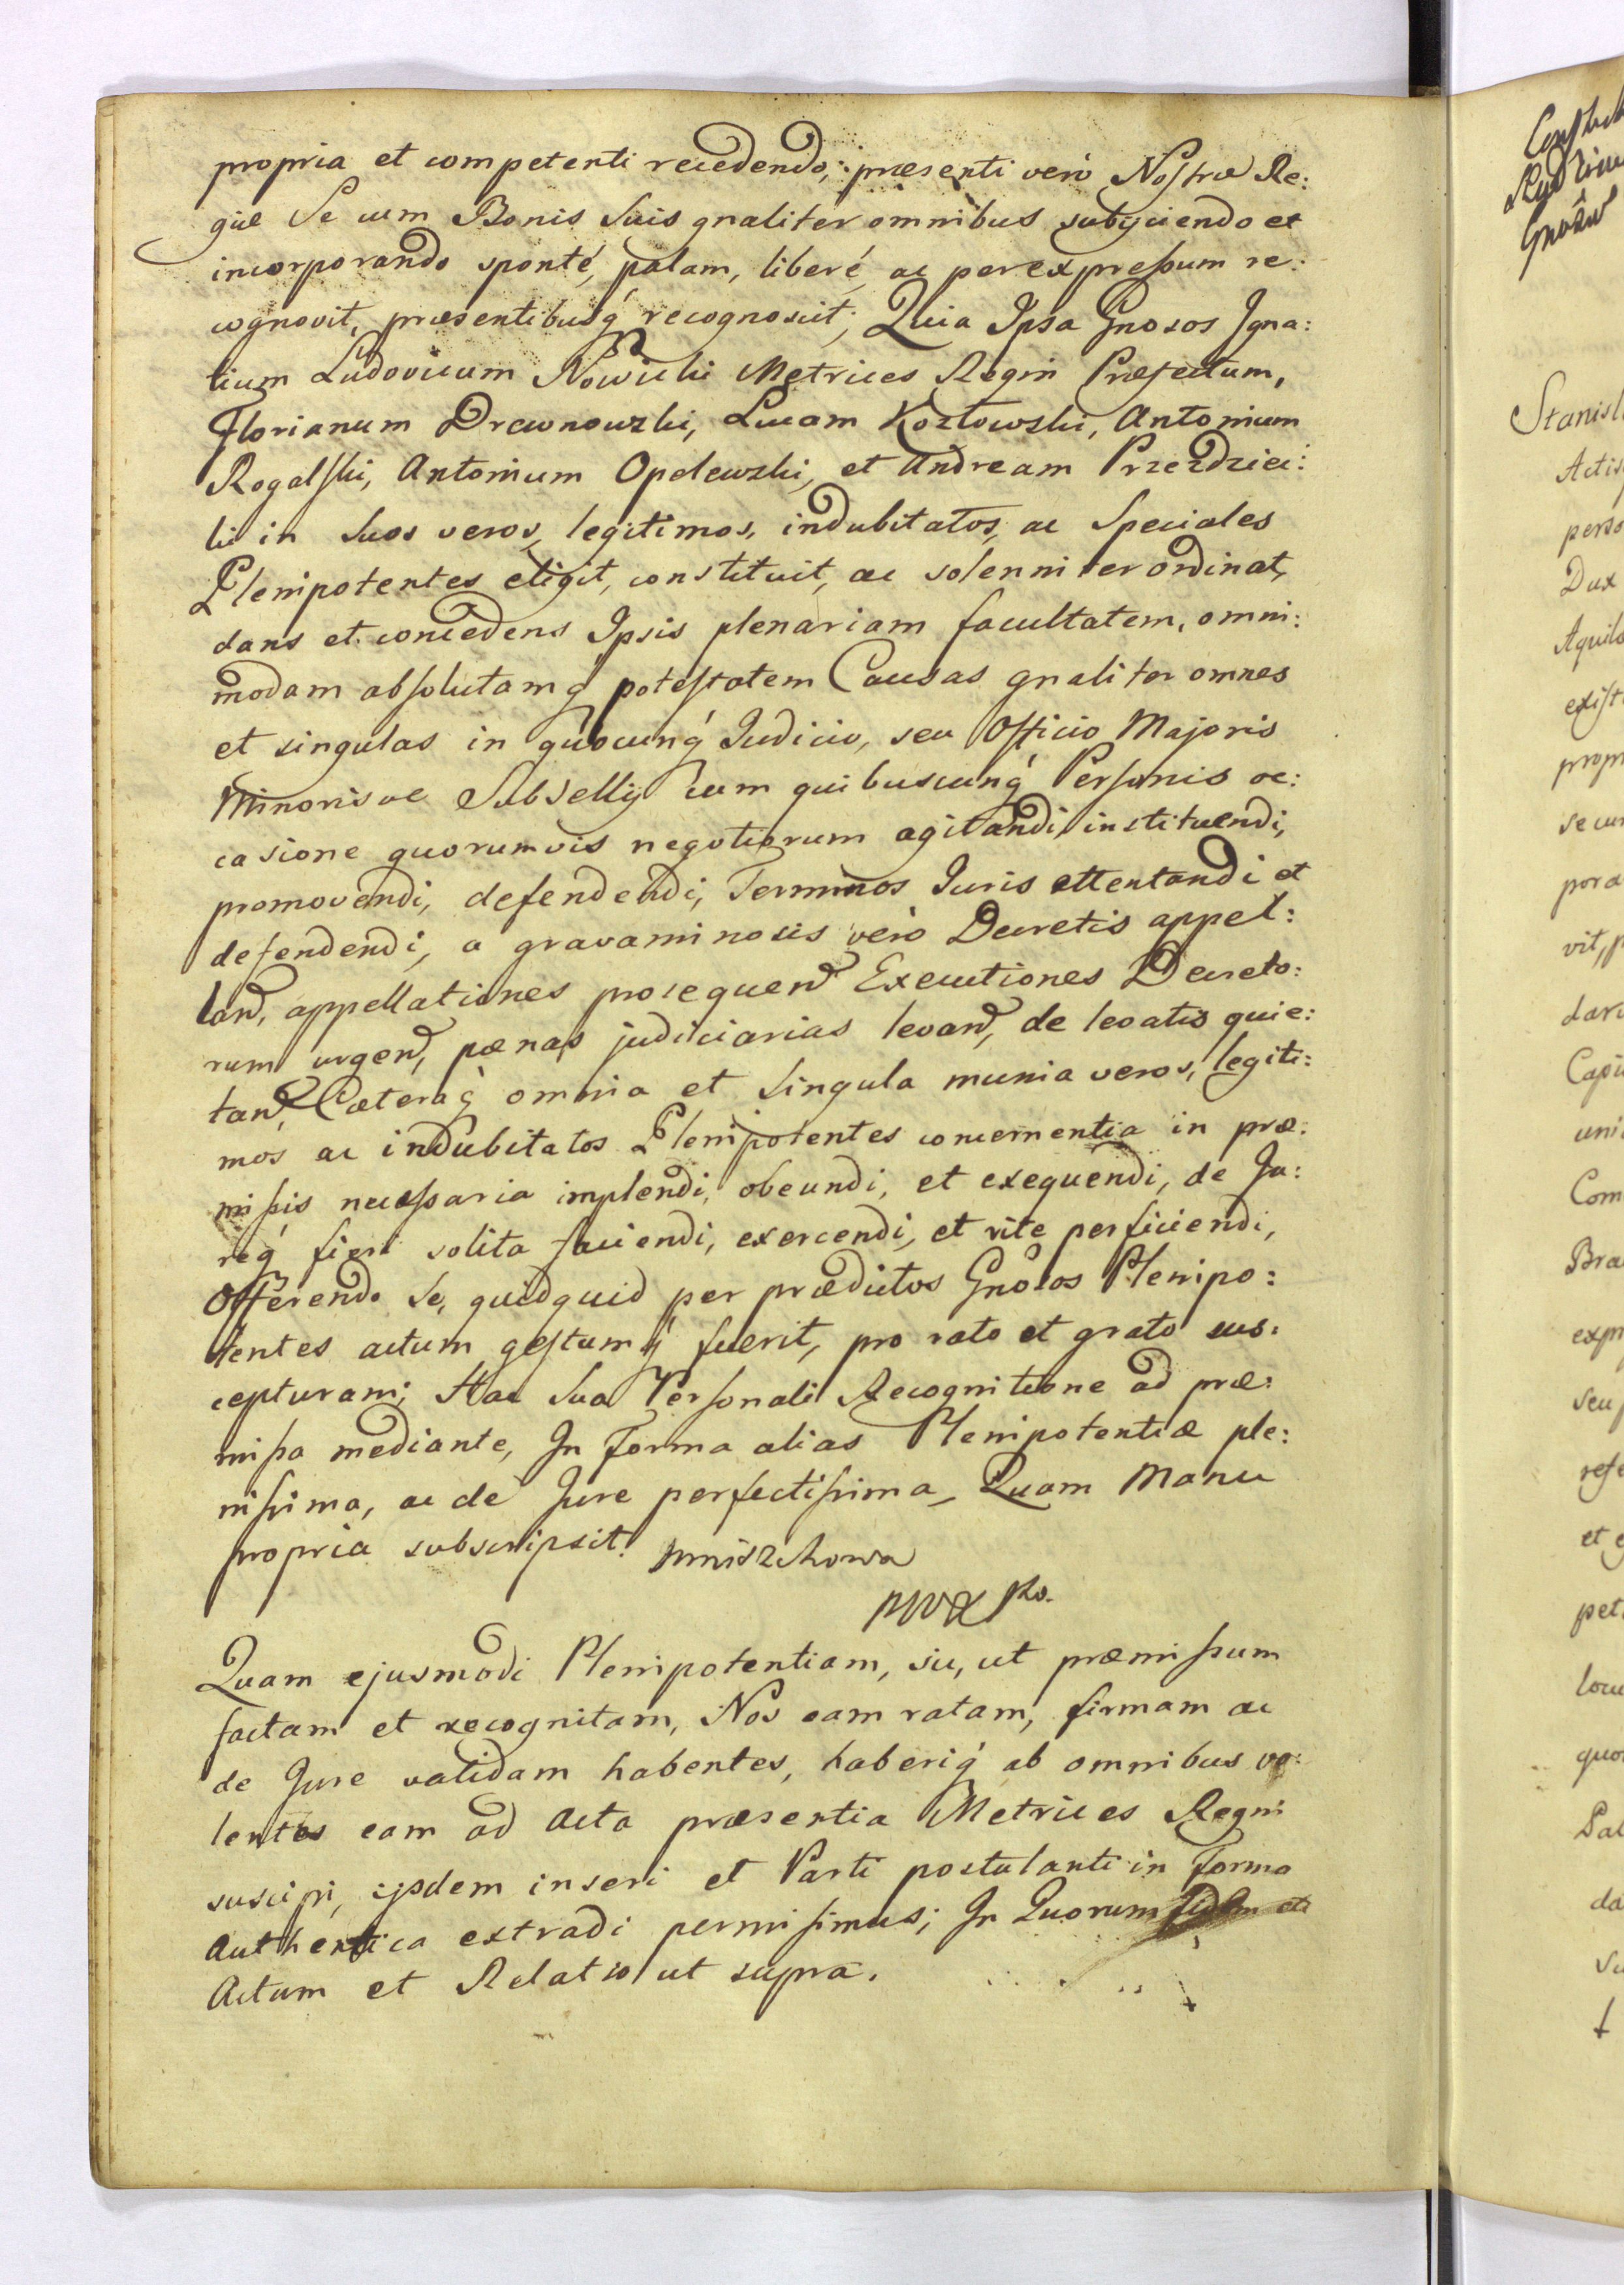 propria et competenti recedendo; præsenti verò Nostræ Re:
giæ Se cum Bonis Suis gnaliter omnibus subijciendo et
incorporando sponté, palam, liberé, ac per expressum re:
cognovit, præsentibusq́ recognoscit; Quia Ipsa Gnosos Igna:
tium Ludovicum Nowicki Metrices Regni Præfectum,
Florianum Drewnowski, Lucam Kozłowski, Antonium
Rogalski, Antonium Opelewski, et Andream Przezdziec:
ki in Suos veros, legitimos, indubitatos, ac Speciales
Plenipotentes eligit, constituit, ac solenniter ordinat,
dans et concedens Ipsis plenariam facultatem, omni:
modam absolutamq́ potestatem Causas gnaliter omnes
et singulas in quocunq́ Judicio, seu Officio Majoris
Minorisve Subsellij cum quibuscunq́ Personis oc:
casione quorumvis negotiorum agitandi, instituendi,
promovendi, defendendi, Terminos Juris attentandi et
defendendi, a gravaminosis verò Decretis appel:
land, appellationes prosequend Executiones Decreto:
rum urgend, pænas judiciarias levand, de levatis quie:
tand, Cæteraq́ omnia et Singula munia veros, legiti:
mos ac indubitatos Plenipotentes concernentia in præ:
missis necessaria implendi, obeundi, et exequendi, de Ju:
req́ fieri solita faciendi, exercendi, et rite perficiendi,
Offerendo Se, quidquid per prædictos Gnosos Plenipo:
tentes actum gestumq́ fuerit, pro rato et grato sus:
cepturam; Hac Sua Personali Recognitione ad præ:
missa mediante, In Forma alias Plenipotentiæ ple:
nissima, ac de Jure perfectissima, Quam Manu
propria subscripsit. Mniszchowa
Quam ejusmodi Plenipotentiam, sic, ut præmissum
factam et recognitam, Nos eam ratam, firmam ac
de Jure validam habentes, haberiq́ ab omnibus vo:
lentes eam ad Acta præsentia Metrices Regni
suscipi, ijsdem inseri et Parti postulanti in Forma
Authentica extradi permisimus; In Quorum Fidem etc
Actum et Relatio ut supra.
Stanisl
Actis
perso
Dux
Aquila
exist
propr
se cum
pora
vit, p
dari
Capi
uni
Com
Bra
expr
seu
refe
et
pet
locu
quo
Pal
da
su